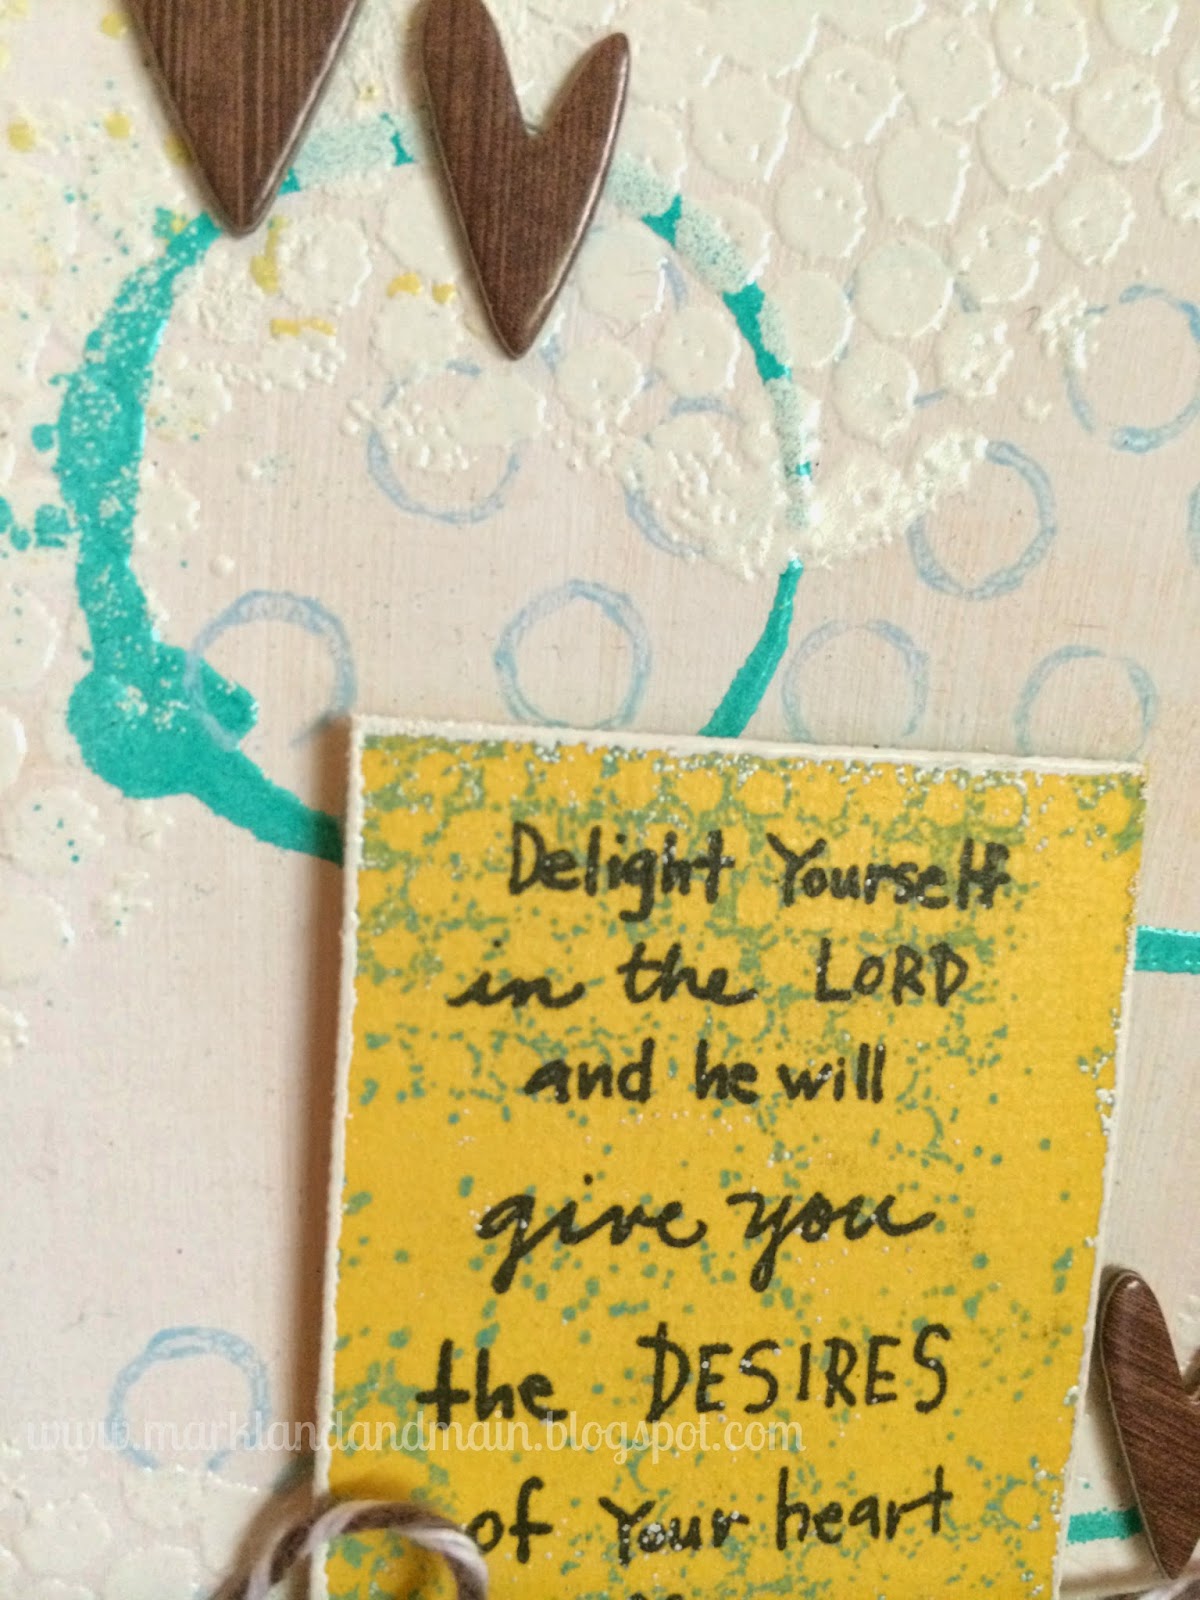 Delight Yourself
in the LORD
and he will
give you
the DESIRES
www.marklandandmain.blogspot.com
of Your heart